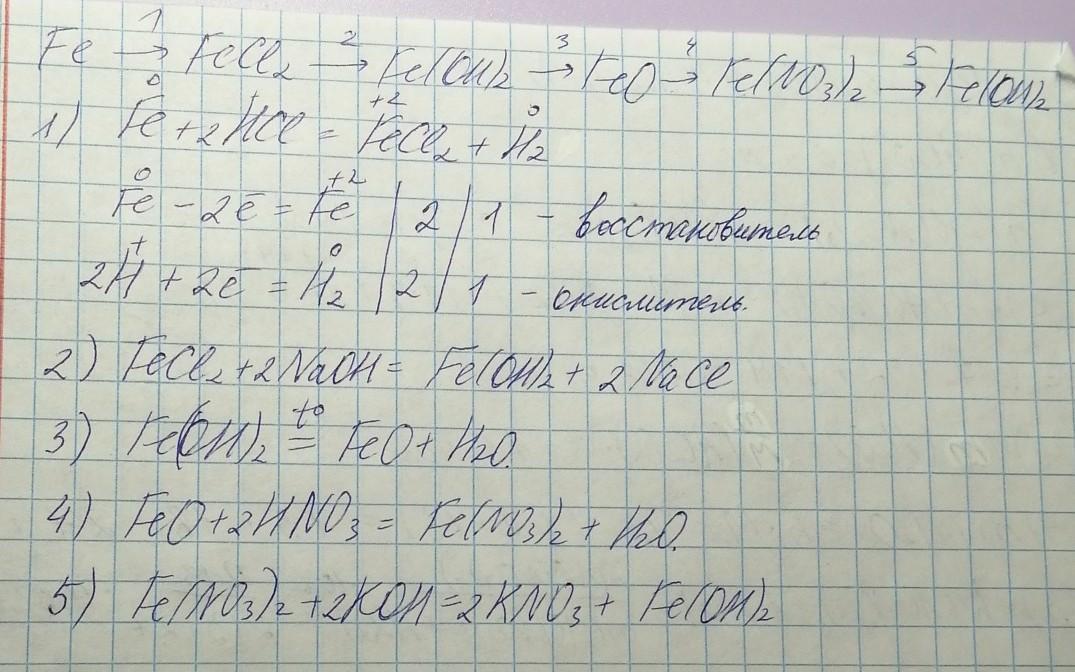 Fe →¹ FeCl₂ →² Fe(OH)₂ →³ FeO →⁴ Fe(NO₃)₂ →⁵ Fe(OH)₂
1) Fe⁰ + 2H⁺Cl = Fe⁺²Cl₂ + H₂⁰
Fe⁰ - 2ē = Fe⁺² | 2 | 1 - восстановитель
2H⁺ + 2ē = H₂⁰ | 2 | 1 - окислитель.
2) FeCl₂ + 2NaOH = Fe(OH)₂ + 2NaCl
3) Fe(OH)₂ =t° FeO + H₂O.
4) FeO + 2HNO₃ = Fe(NO₃)₂ + H₂O.
5) Fe(NO₃)₂ + 2KOH = 2KNO₃ + Fe(OH)₂